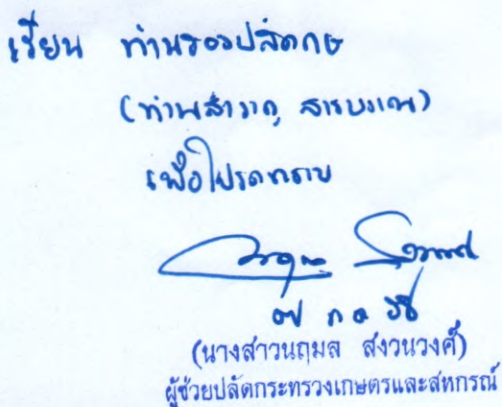 เรียน ท่านรองปลัดกษ
(ท่านสำราญ สาราบรรณ)
เพื่อโปรดทราบ
(นางสาวนฤมล สงวนวงศ์)
ผู้ช่วยปลัดกระทรวงเกษตรและสหกรณ์